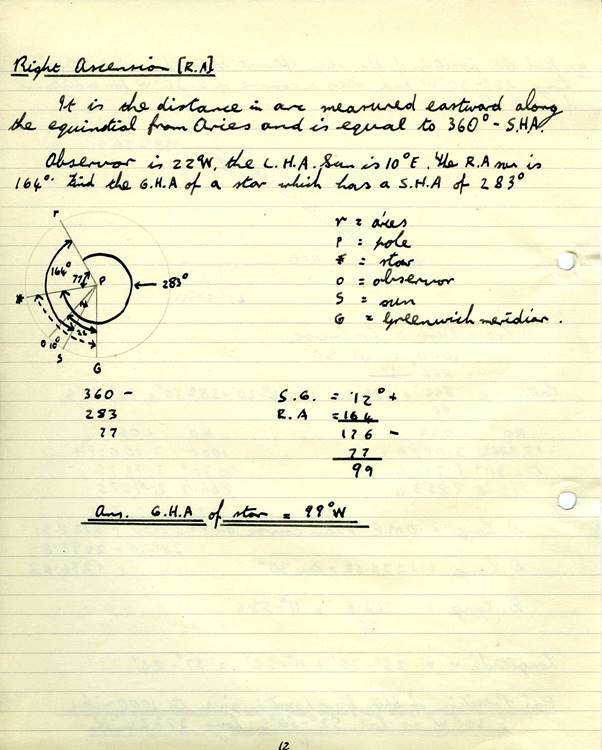 Right Ascension [R.A]
It is the distance in arc measured eastward along
the equinotial from Aries and is equal to 360° - S.H.A.
Observor is 22°W, the L.H.A. Sun is 10°E. The R.A sun is
164°. Find the G.H.A of a star which has a S.H.A of 283°
r = aries
P = pole
* = star
O = observor
S = sun
G = Greenwich meridian.
r
164°
77°
P
283°
*
12
22
O 10°
S
G
360 -
283
77
S.G. = 12° +
R.A = 164
176 -
77
99
Ans. G.H.A of star = 99°W
12